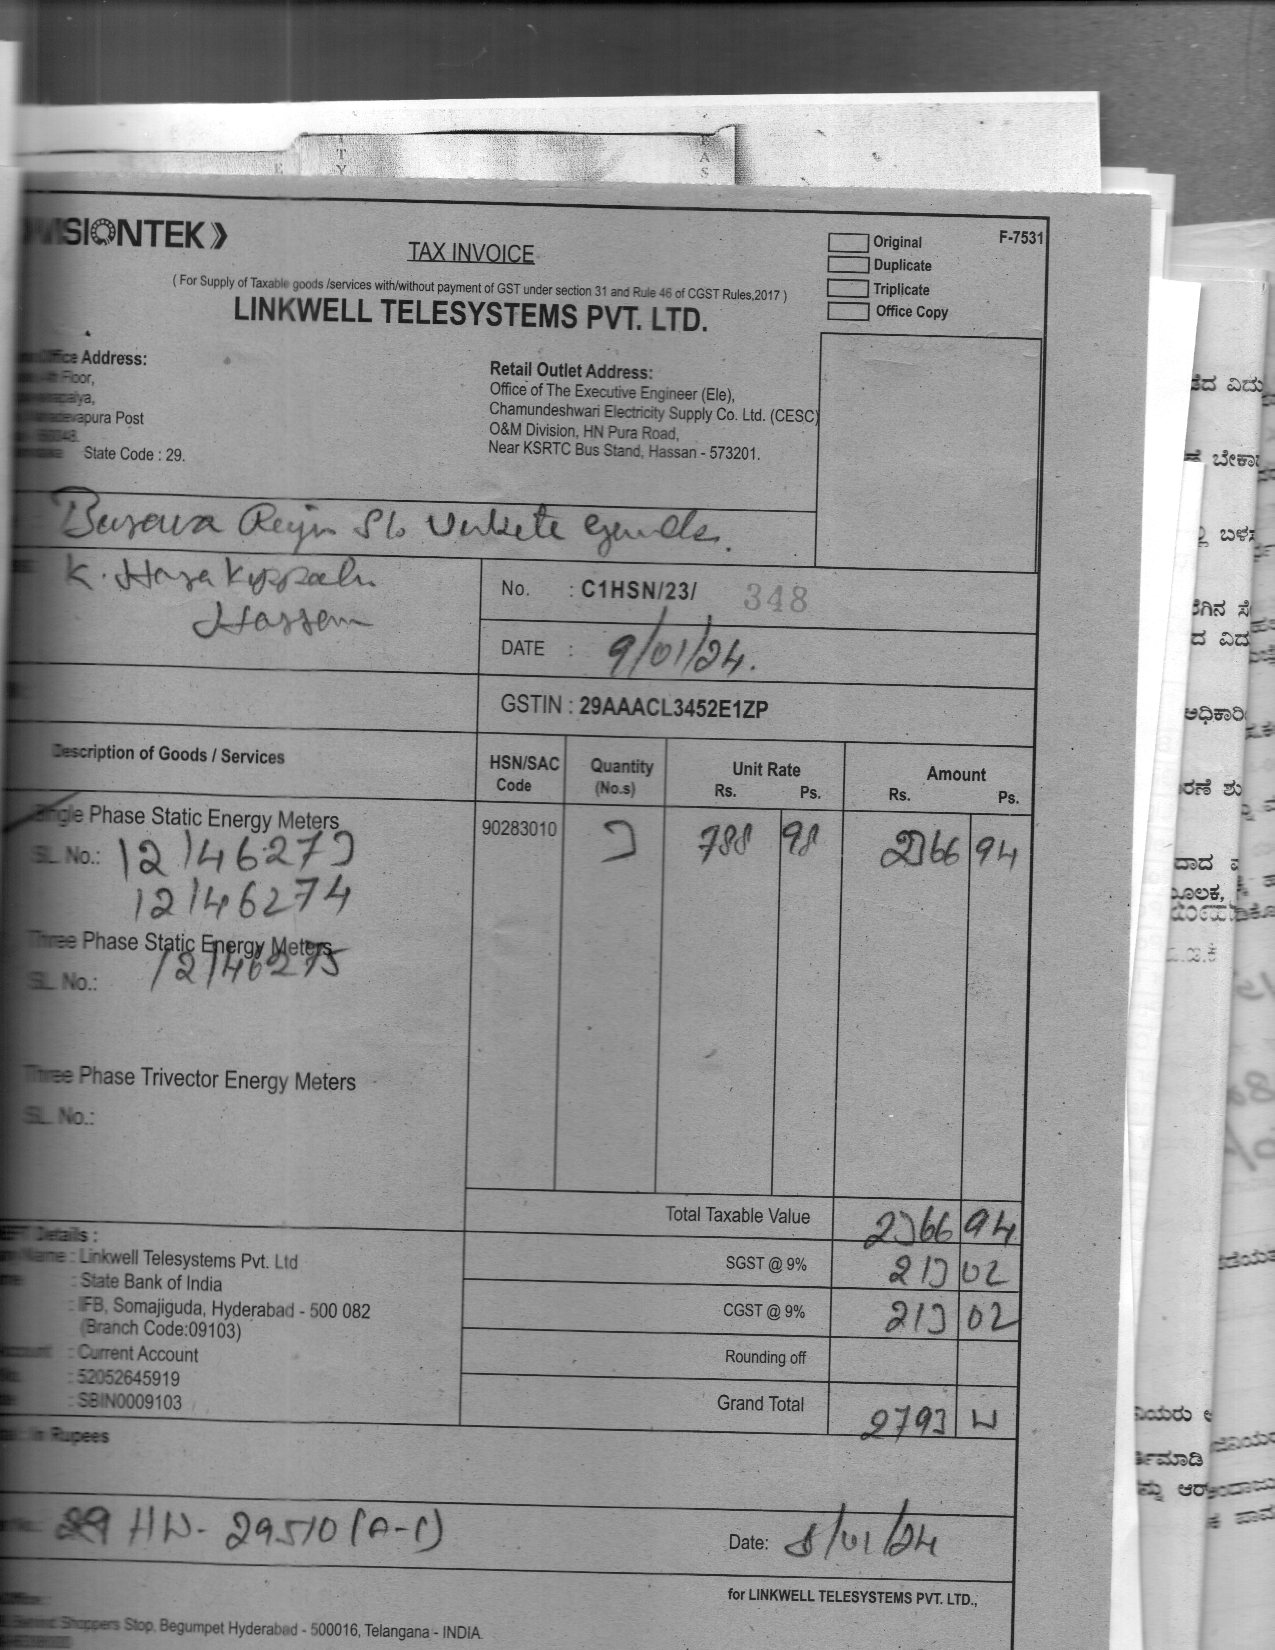 VISIONTEK
TAX INVOICE
Original
Duplicate
Triplicate
Office Copy
F-7531
( For Supply of Taxable goods /services with/without payment of GST under section 31 and Rule 46 of CGST Rules,2017 )
LINKWELL TELESYSTEMS PVT. LTD.
Office Address:
Floor,
Post
State Code : 29.
Retail Outlet Address:
Office of The Executive Engineer (Ele),
Chamundeshwari Electricity Supply Co. Ltd. (CESC)
O&M Division, HN Pura Road,
Near KSRTC Bus Stand, Hassan - 573201.
S/o
K.
Hassan
No. : C1HSN/23/ 348
DATE : 9/01/24.
GSTIN : 29AAACL3452E1ZP
Description of Goods / Services HSN/SAC Code Quantity (No.s) Unit Rate Rs. Ps. Amount Rs. Ps.
Single Phase Static Energy Meters 90283010 3 788 98 2366 94
SL No.: 12146273
12146274
Three Phase Static Energy Meters
12146275
SL No.:
Three Phase Trivector Energy Meters
SL No.:
Total Taxable Value 2366 94
SGST @ 9% 213 02
CGST @ 9% 213 02
Rounding off
Grand Total 2793
Details :
Name : Linkwell Telesystems Pvt. Ltd
: State Bank of India
: IFB, Somajiguda, Hyderabad - 500 082
(Branch Code:09103)
: Current Account
: 52052645919
: SBIN0009103
in Rupees
29510 (A-1)
Date: 8/01/24
for LINKWELL TELESYSTEMS PVT. LTD.,
Shoppers Stop, Begumpet Hyderabad - 500016, Telangana - INDIA.